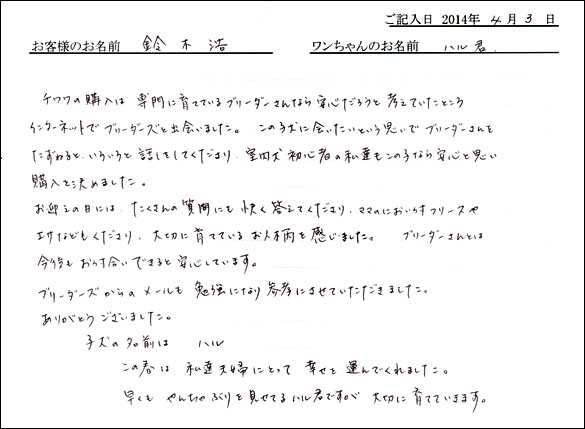 ご記入日 2014年 4月 3日
お客様のお名前 鈴木 浩 ワンちゃんのお名前 ハル君
チワワの購入は 専門に育てているブリーダーさんなら安心だろうと考えていたところ
インターネットでブリーダーズと出会いました。 この子犬に会いたいという思いでブリーダーさんを
たずねると、いろいろと話しをしてくださり、室内犬初心者の私達もこの子なら安心と思い
購入を決めました。
お迎えの日には、たくさんの質問にも快く答えてくださり、ママのにおいつきフリースや
エサなどもくださり、大切に育てているお人柄を感じました。 ブリーダーさんとは
今後もおつき合いできると安心しています。
ブリーダーズからのメールも 勉強になり参考にさせていただきました。
ありがとうございました。
子犬の名前は ハル
この春は 私達夫婦にとって 幸せを運んでくれました。
早くも やんちゃぶりを見せてるハル君ですが 大切に育てていきます。